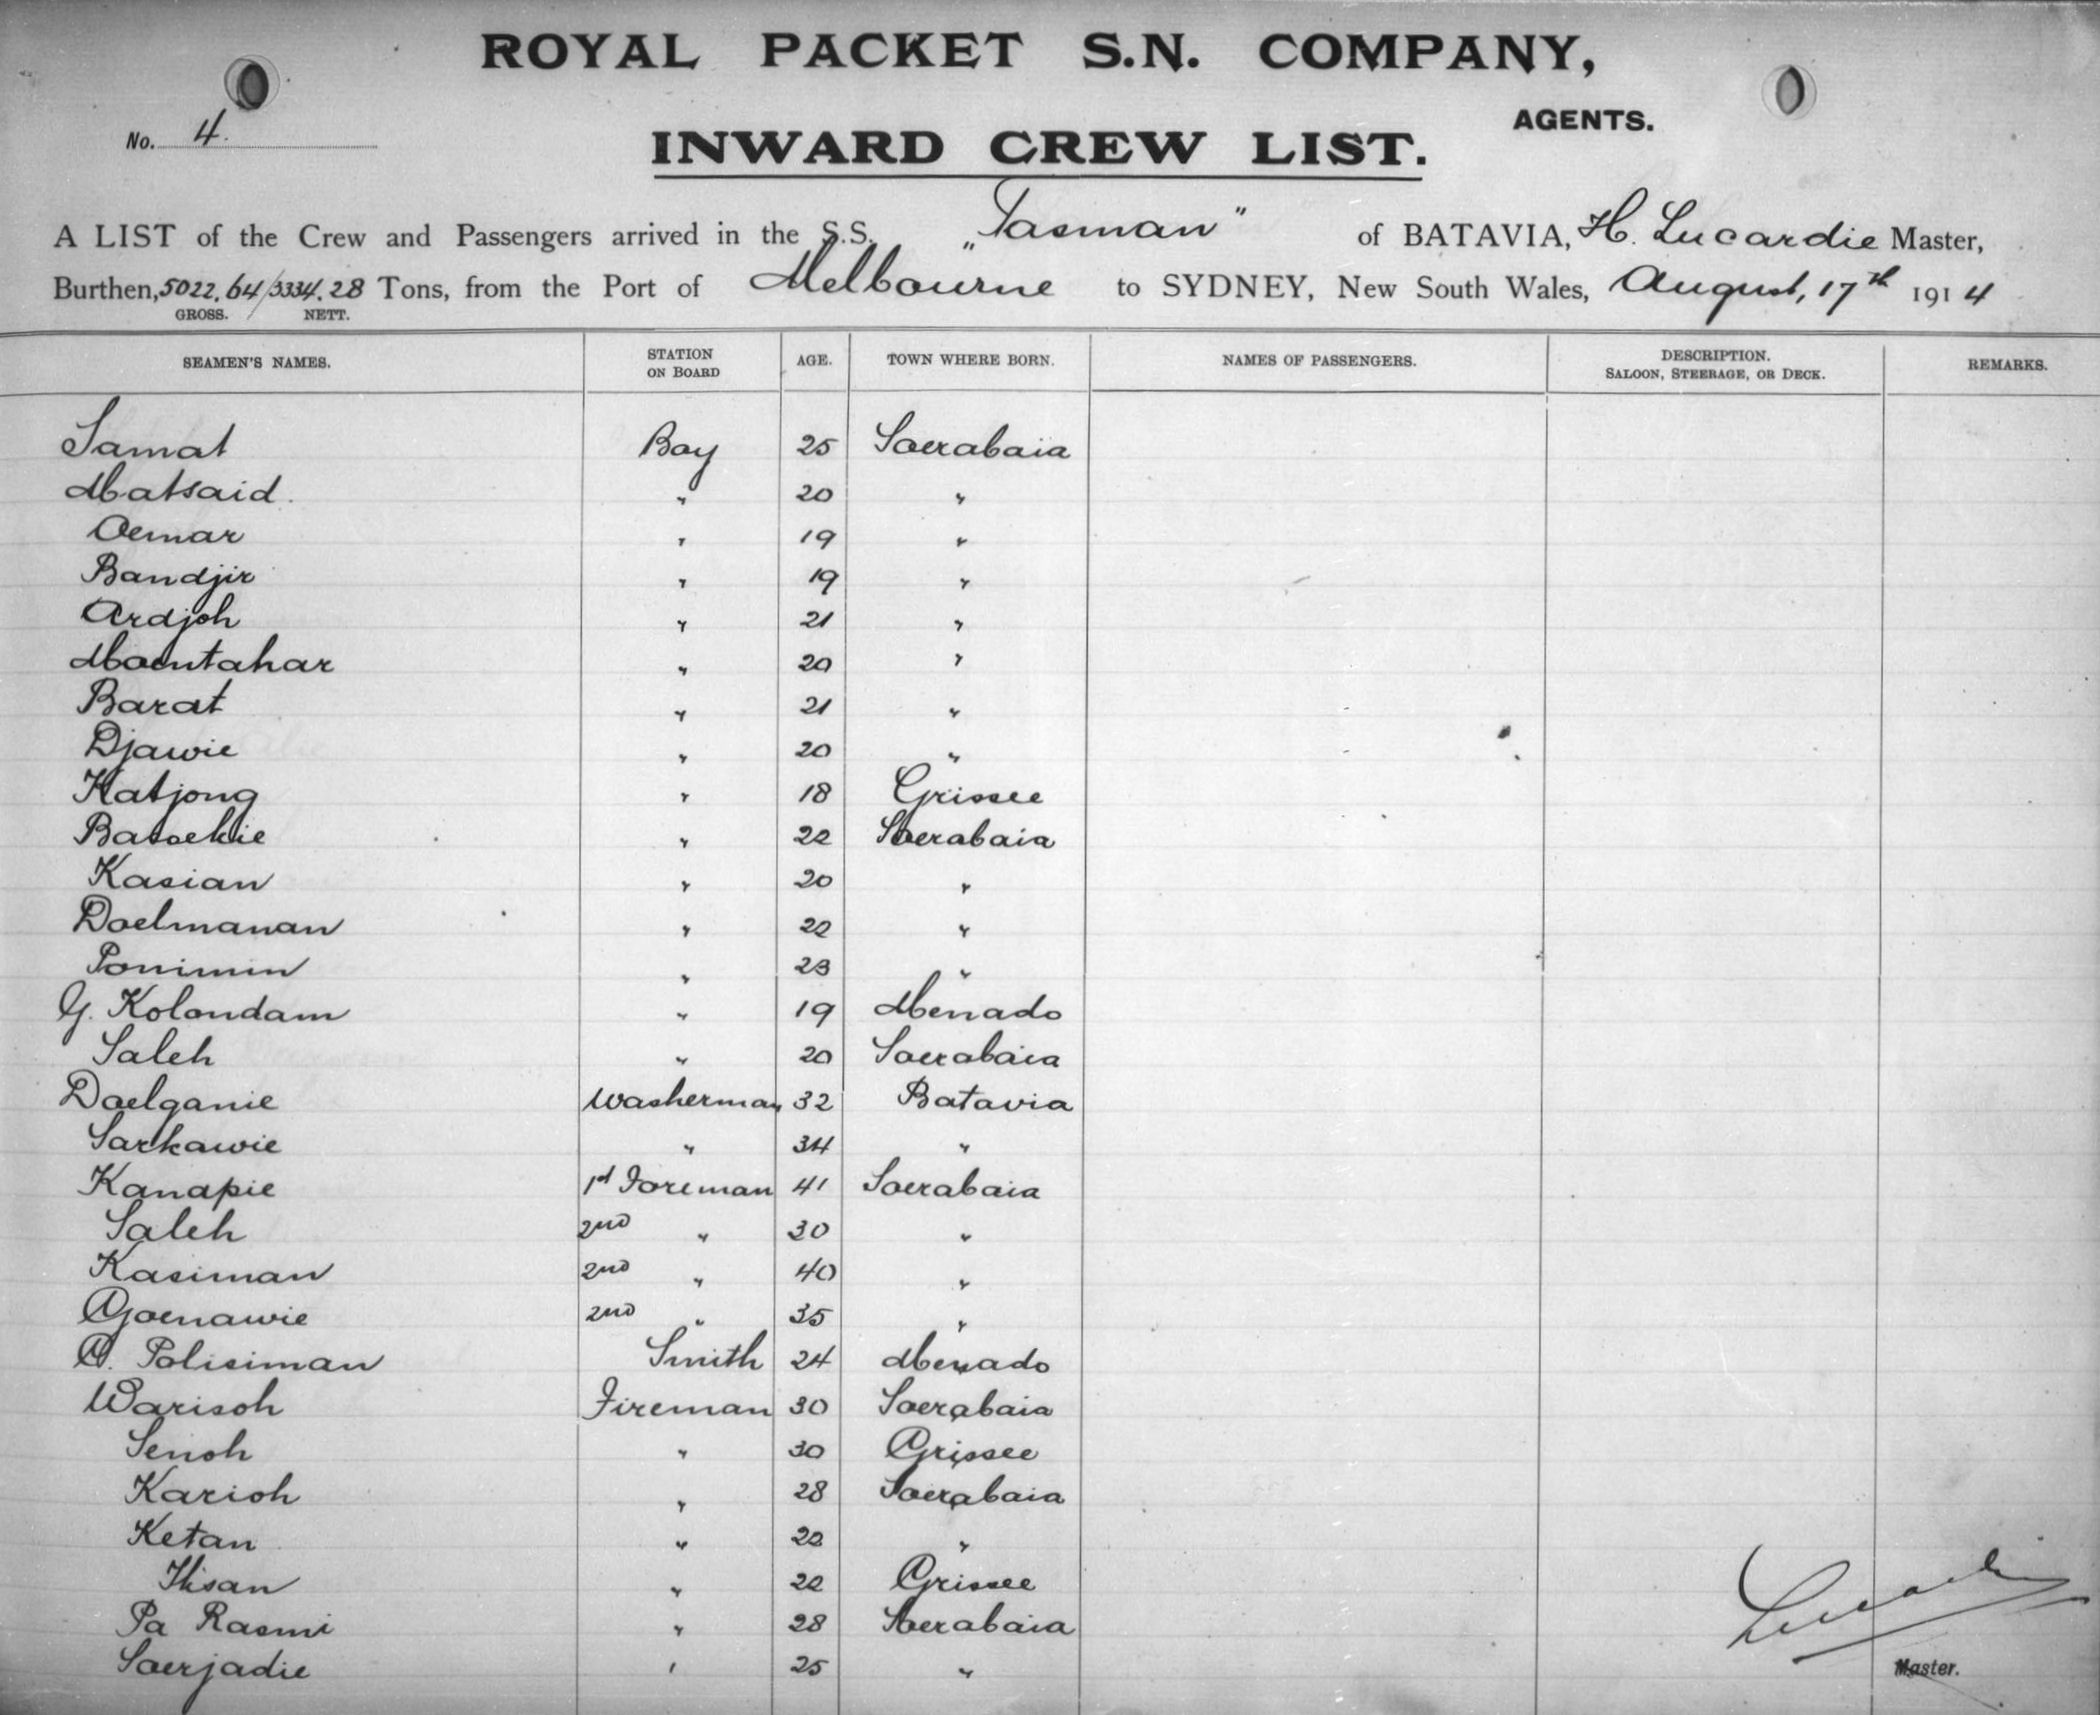 ROYAL PACKET S.N. COMPANY,
AGENTS.
No. 4.
INWARD CREW LIST.
A LIST of the Crew and Passengers arrived in the S.S. „Tasman" of BATAVIA, H. Lucardie Master,
Burthen, 5022.64/3334.28 Tons, from the Port of Melbourne to SYDNEY, New South Wales, August, 17th 1914
GROSS. NETT.
SEAMEN'S NAMES. STATION ON BOARD AGE. TOWN WHERE BORN. NAMES OF PASSENGERS. DESCRIPTION. SALOON, STEERAGE, OR DECK. REMARKS.
Samat Boy 25 Soerabaia
Matsaid " 20 "
Oemar " 19 "
Bandjir " 19 "
Ardjoh " 21 "
Moentahar " 20 "
Barat " 21 "
Djawie " 20 "
Katjong " 18 Grissee
Basoekie " 22 Soerabaia
Kasian " 20 "
Doelmanan " 22 "
Ponimin " 23 "
G. Kolondam " 19 Menado
Saleh " 20 Soerabaia
Doelganie Washerman 32 Batavia
Sarkawie " 34 "
Kanapie 1st Foreman 41 Soerabaia
Saleh 2nd " 30 "
Kasiman 2nd " 40 "
Goenawie 2nd " 35 "
A. Polisiman Smith 24 Menado
Warisoh Fireman 30 Soerabaia
Senoh " 30 Grissee
Karioh " 28 Soerabaia
Ketan " 22 "
Ihsan " 22 Grissee
Pa Rasmi " 28 Soerabaia
Soerjadie " 25 "
Lucardie
Master.